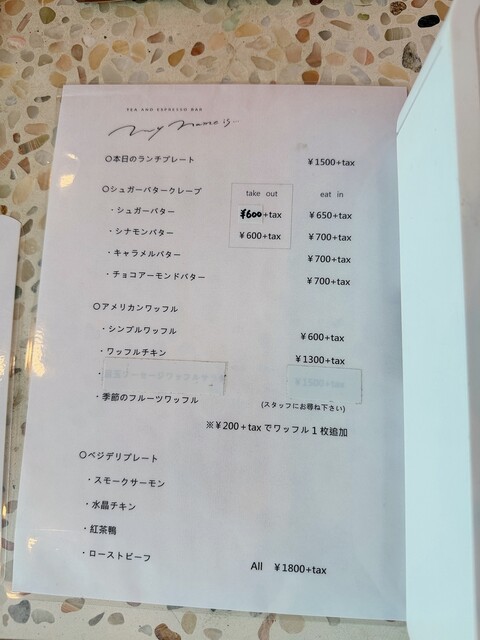 TEA AND ESPRESSO BAR
My name is...
〇本日のランチプレート ¥1500+tax
〇シュガーバタークレープ take out eat in
・シュガーバター ¥600+tax ¥650+tax
・シナモンバター ¥600+tax ¥700+tax
・キャラメルバター ¥700+tax
・チョコアーモンドバター ¥700+tax
〇アメリカンワッフル
・シンプルワッフル ¥600+tax
・ワッフルチキン ¥1300+tax
・ ¥1500+tax
・季節のフルーツワッフル (スタッフにお尋ね下さい)
※¥200+taxでワッフル1枚追加
〇ベジデリプレート
・スモークサーモン
・水晶チキン
・紅茶鴨
・ローストビーフ All ¥1800+tax